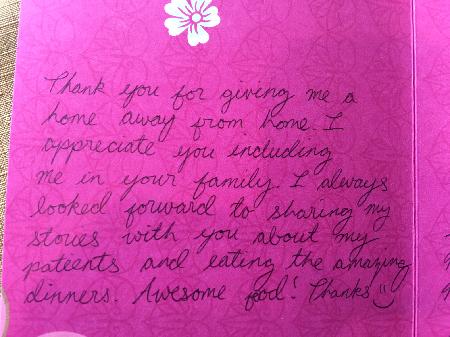 Thank you for giving me a
home away from home. I
appreciate you including
me in your family. I always
looked forward to sharing my
stories with you about my
pateents and eating the amazing
dinners. Awesome food! Thanks